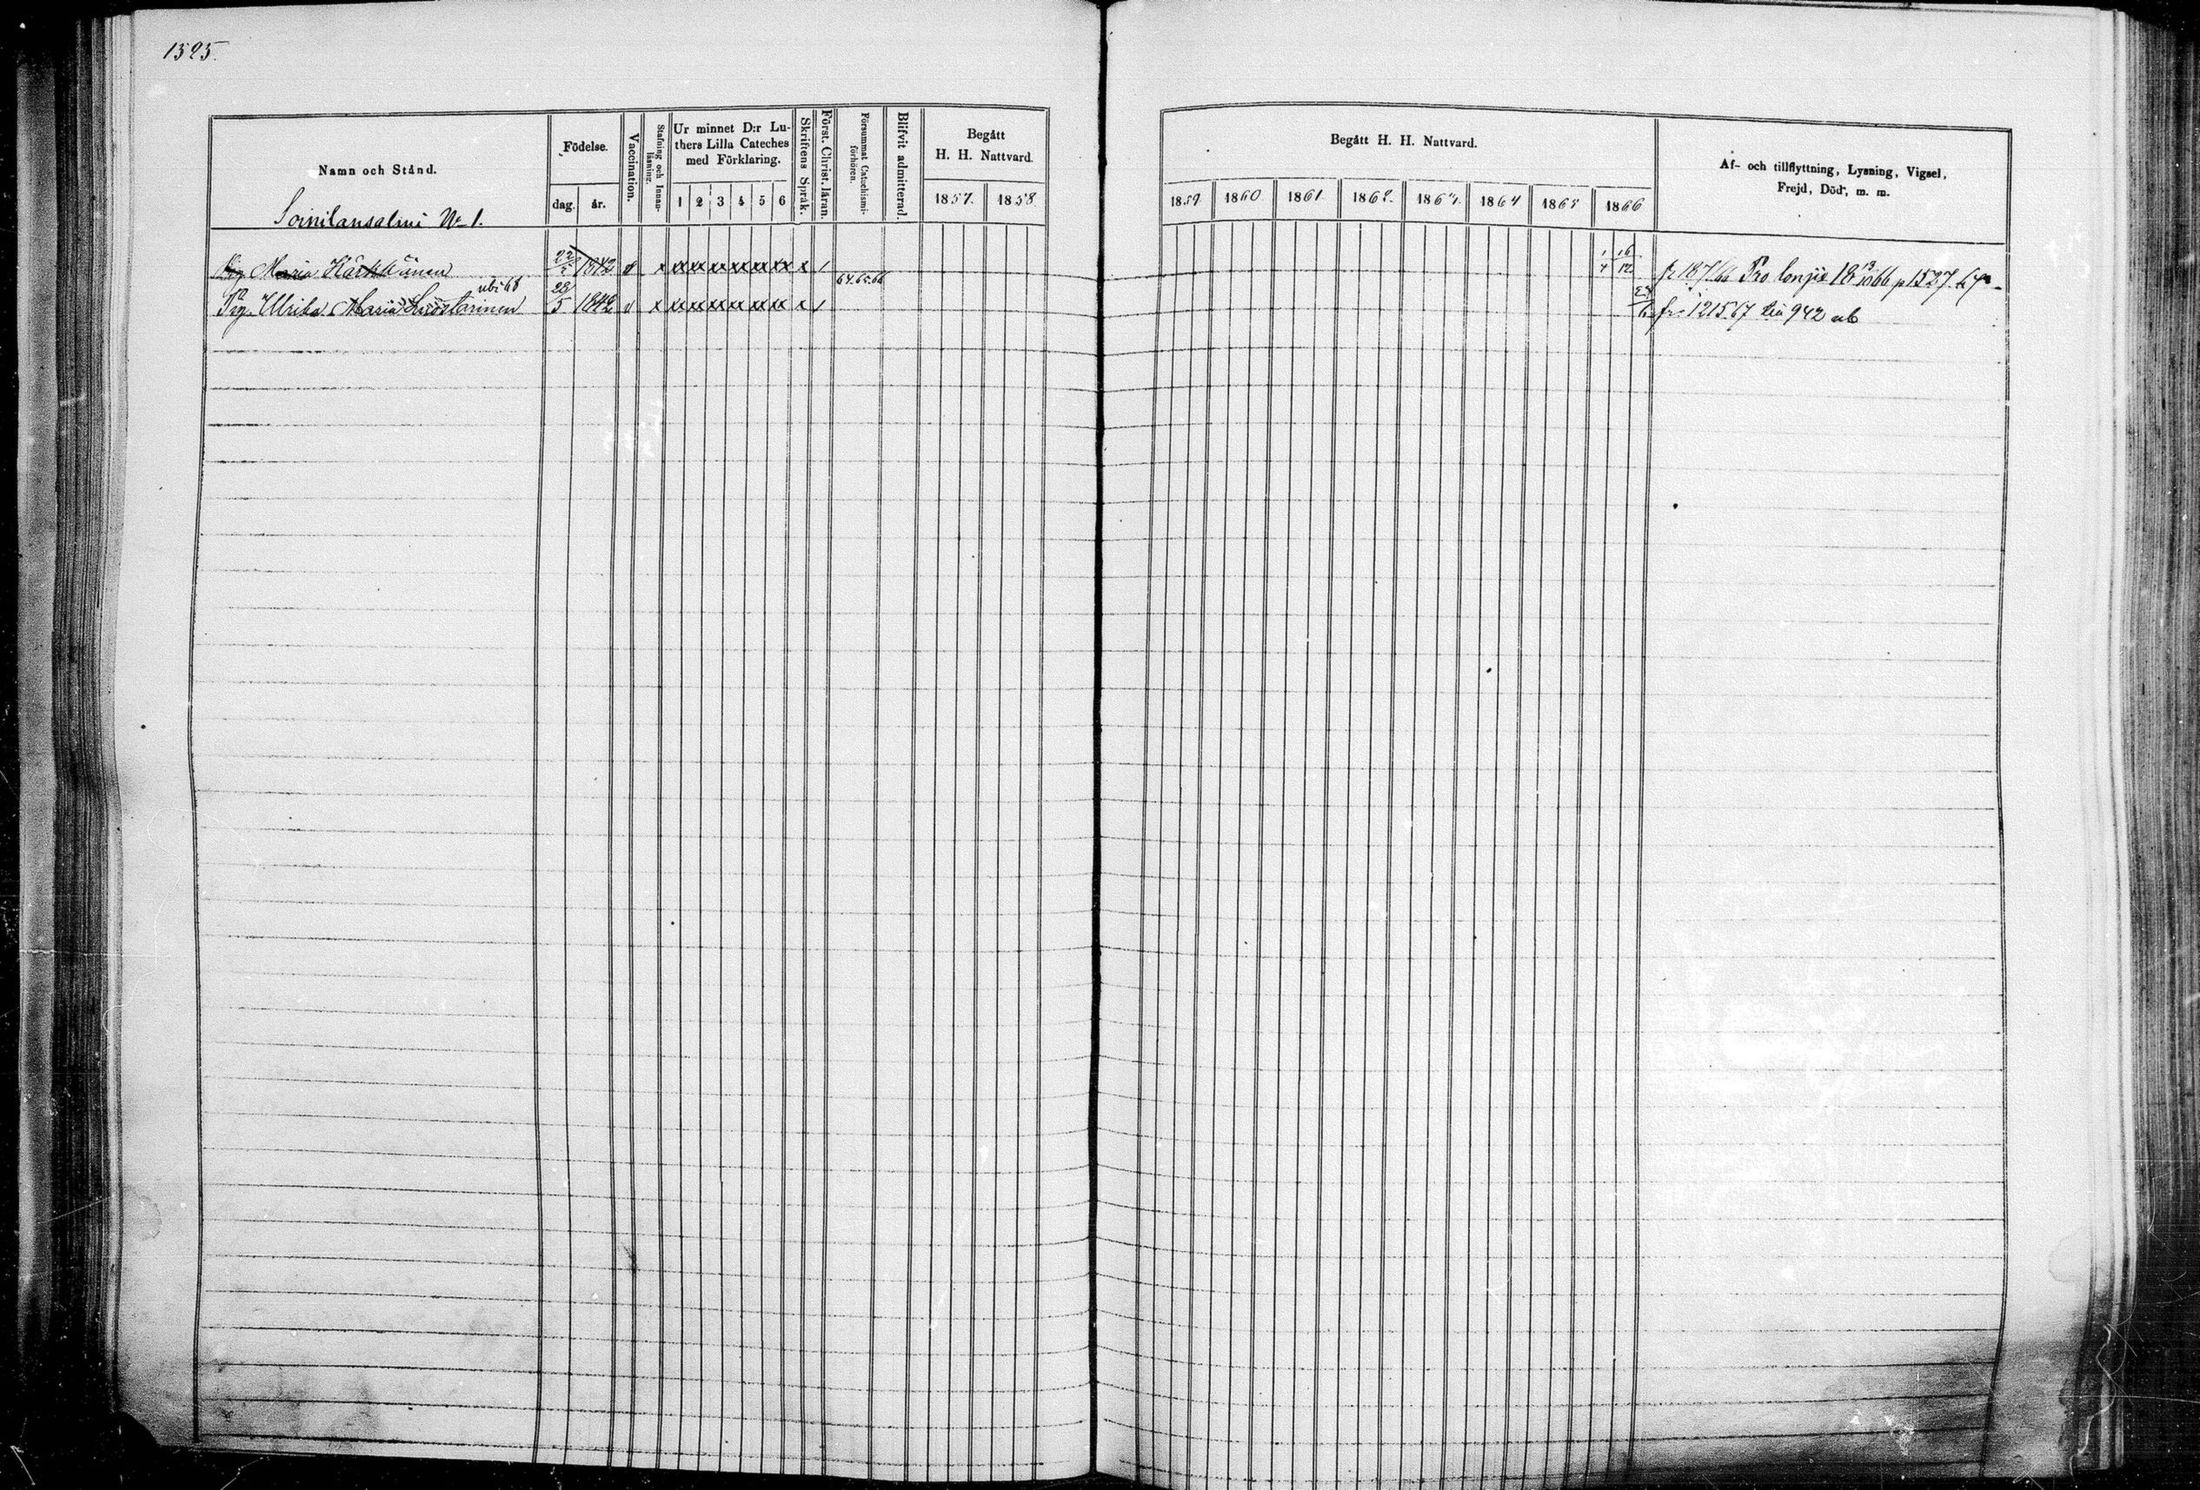 1525.
Namn och Stånd.
Födelse.
dag. år.
Vaccination.
Stafning och Innanläsning.
Ur minnet D:r Luthers Lilla Cateches med Förklaring.
1 2 3 4 5 6
Skriftens Språk.
Först. Christ. läran.
Försummat Catechismiförhören.
Blifvit admitterad.
Begått H. H. Nattvard.
1857. 1858
Begått H. H. Nattvard.
1859. 1860 1861 1862. 1863. 1864 1865 1866
Af- och tillflyttning, Lysning, Vigsel, Frejd, Död, m. m.
Soinilansalmi No 1.
Pig Maria Härkkänen 22 1842 v x xx xx xx xx xx xx x / 64.65.66 1/4 16/12 fr 187/66 p 1527
Pig. Ulrika Maria 28/5 1842 v x xx xx xx xx xx xx x / fr: 1215.67 942 ub